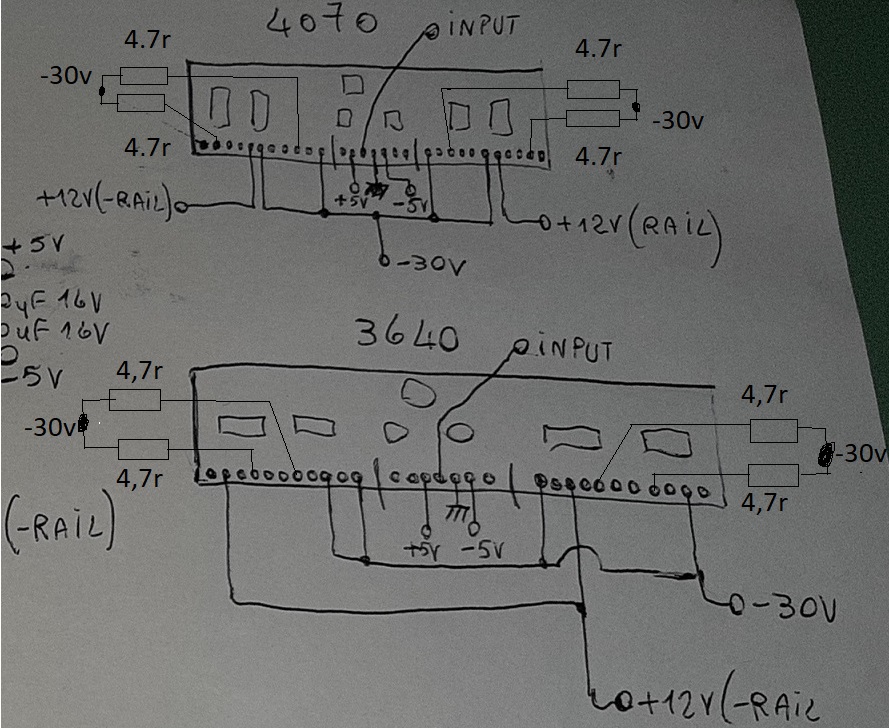 4070
INPUT
4.7r
4.7r
-30v
-30v
4.7r
4.7r
+12V(-RAiL)
+5V
-5V
+12V(RAiL)
-30V
+5V
uF 16V
uF 16V
-5V
3640
iNPUT
4,7r
4,7r
-30v
-30v
4,7r
4,7r
(-RAiL)
+5V
-5V
-30V
+12V(-RAiL